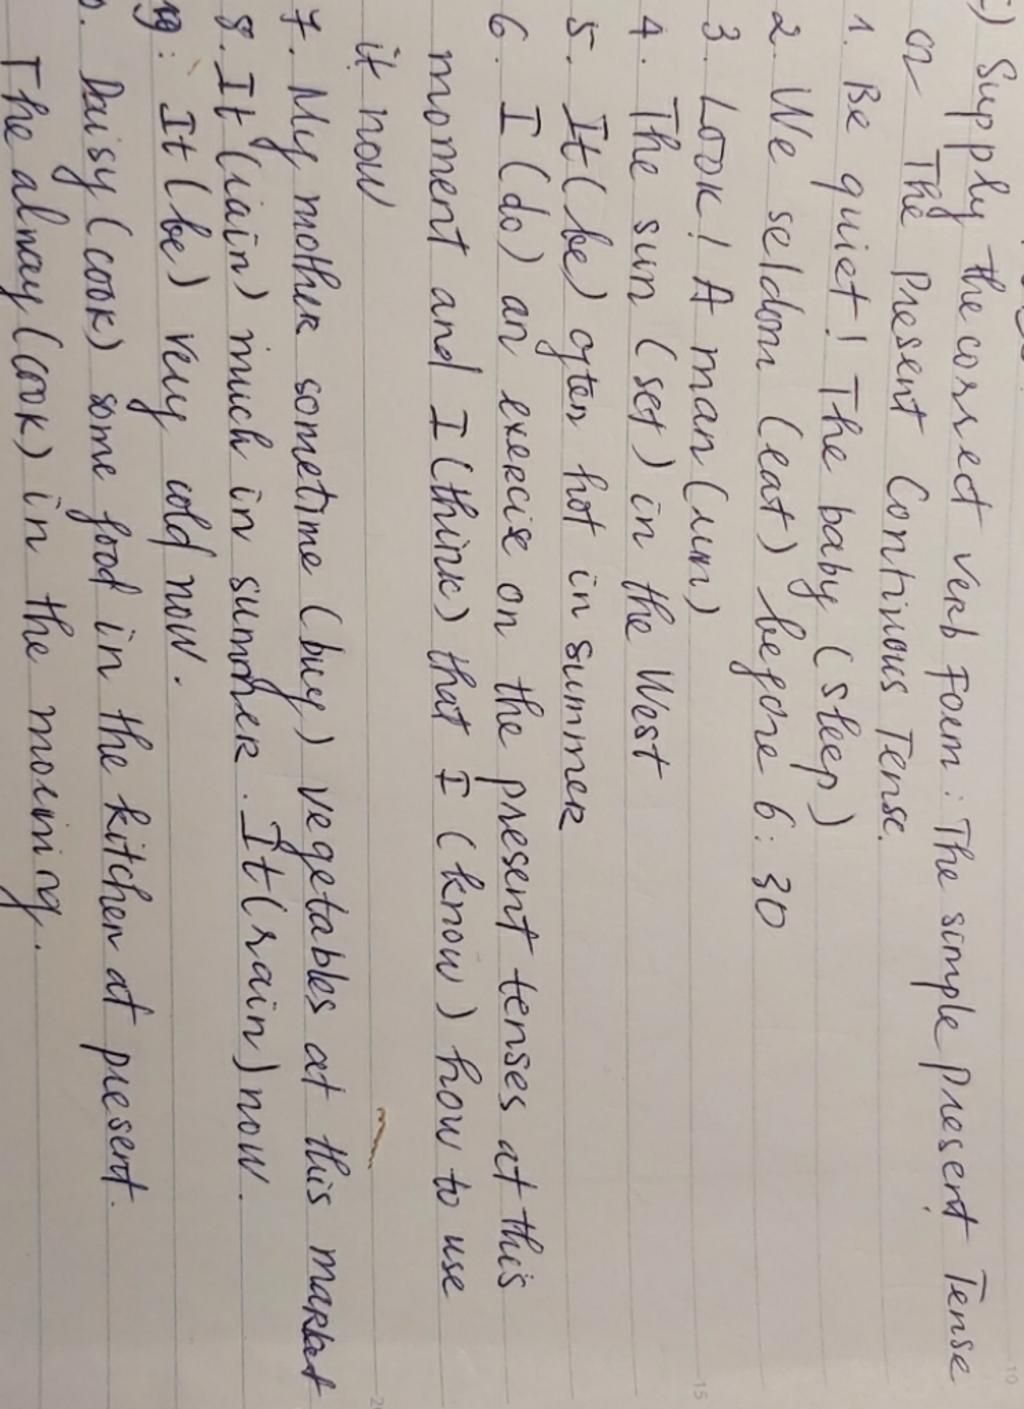 Supply the correct verb Form: The simple present Tense
or The Present Continous Tense.
1. Be quiet! The baby (sleep)
2. We seldom (eat) before 6:30
3. Look! A man (run)
4. The sun (set) in the West
5. It (be) often hot in summer
6. I (do) an exercise on the present tenses at this
moment and I (think) that I (know) how to use
it now
7. My mother sometime (buy) vegetables at this market
8. It (rain) much in summer. It (rain) now.
9: It (be) very cold now.
Daisy (cook) some food in the kitchen at present.
The alway (cook) in the morning.
15